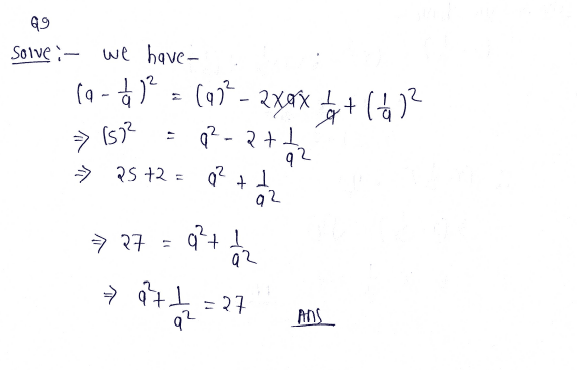 Q9
Solve:- we have-
(a - 1/a)² = (a)² - 2×a× 1/a + (1/a)²
⇒ (5)² = a² - 2 + 1/a²
⇒ 25 + 2 = a² + 1/a²
⇒ 27 = a² + 1/a²
⇒ a² + 1/a² = 27 Ans